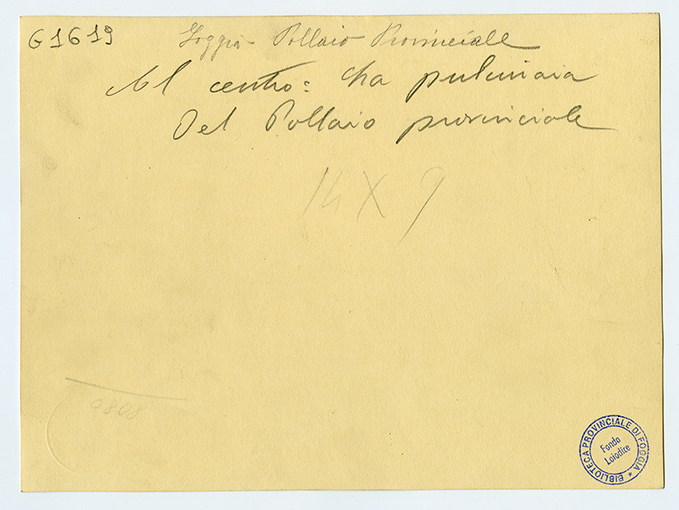 G1619
Foggia - Pollaio Provinciale
Al centro: La pulcinaia
Del Pollaio provinciale
14 X 9
0808
BIBLIOTECA PROVINCIALE DI FOGGIA *
Fondo
Loiodice